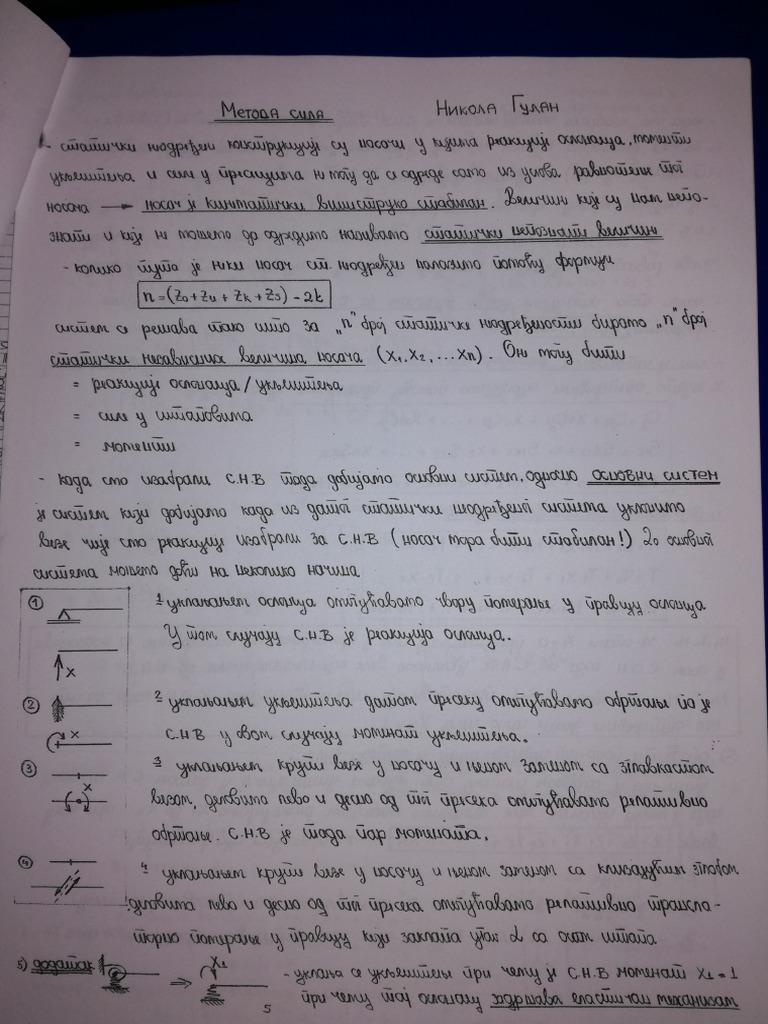 Метода сила Никола Гулан
- статички неодређени конструкције су носачи у којима реакције ослонаца, моменти
укљештења и силе у пресецима не могу да се одреде само из услова равнотеже тог
носача → носач је кинематички вишеструко стабилан. Величине које су нам непо-
знате и које не можемо да одредимо називамо статички непознате величине
- колико пута је неки носач ст. неодређен налазимо помоћу формуле
n = (Zo + Zu + Zk + Zs) - 2k
систем се решава тако што за „n" број статичке неодређености бирамо „n" број
статички независних величина носача (X1, X2, ... Xn). Оне могу бити
= реакције ослонаца / укљештења
= силе у штаповима
= моменти
- када смо изабрали С.Н.В тада добијамо основни систем, односно основни систем
је систем који добијамо када из датог статички неодређеног система уклонимо
везе чије смо реакције изабрали за С.Н.В (носач мора бити стабилан!) До основног
система можемо доћи на неколико начина
1 1 уклањањем ослонца омогућавамо чвору померање у правцу ослонца
У том случају С.Н.В је реакција ослонца..
X
2 2 уклањањем укљештења датом пресеку омогућавамо обртање па је
X С.Н.В у овом случају моменат укљештења.
3 3 уклањањем круте везе у носачу и њеном заменом са зглавкастом
X везом, деловима лево и десно од тог пресека омогућавамо релативно
обртање. С.Н.В је тада пар момената.
4 4 уклањањем круте везе у носачу и њеном заменом са клизајућим зглобом
деловима лево и десно од тог пресека омогућавамо релативно трансла-
торно померање у правцу који заклапа угао α са осом штапа.
5) додатак X1 - уклања се укљештење при чему је С.Н.В моменат X1 = 1
при чему тај ослонац задржава еластичан механизам
5